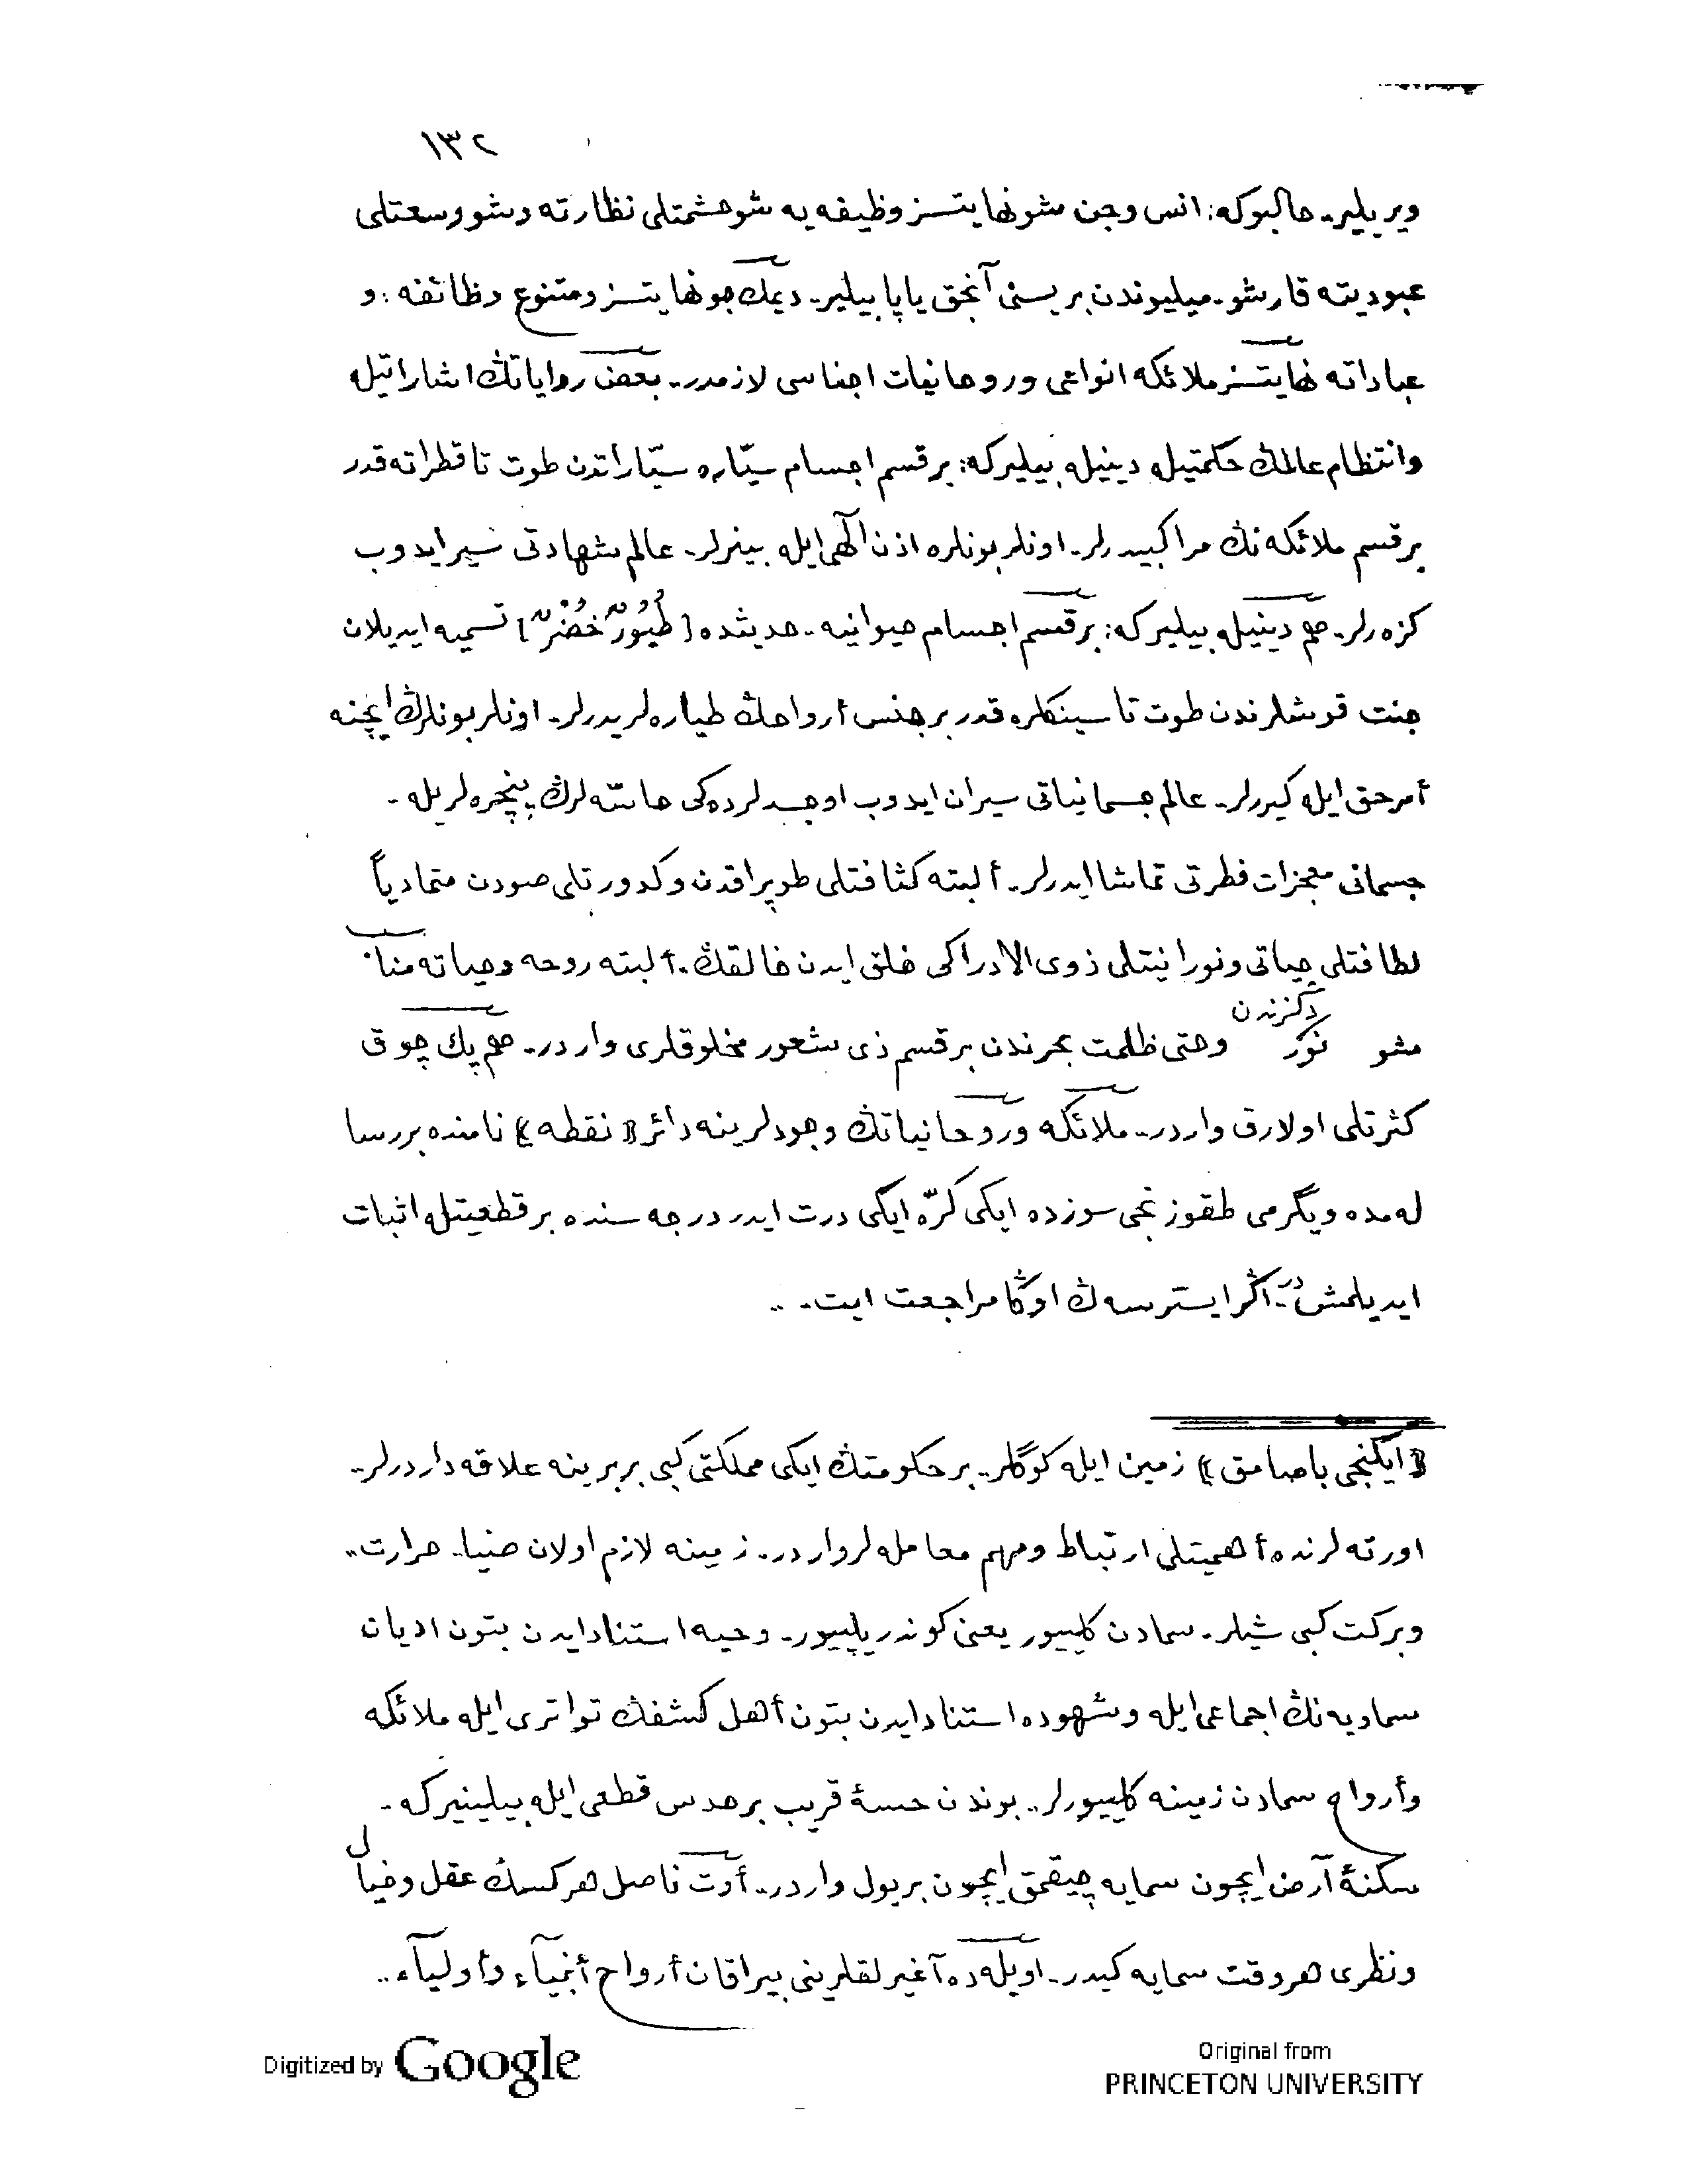 ١٣٢
ويريلير. حالبوكه: انس وجن شو نهايتسز وظيفه يه شو حشمتلى نظارته و شو وسعتلى
عبوديته قارشو. ميليوندن بريسنى آنجق ياپا بيلير. ديمك بو نهايتسز و متنوع وظائفه: و
عباداته نهايتسز ملائكه انواعى و روحانيات اجناسى لازمدر. بعض رواياتڭ اشاراتيله
وانتظام عالمڭ حكمتيله دينيله بيليركه: بر قسم اجسام سيّاره سيّاراتدن طوت تا قطراته قدر
بر قسم ملائكه نڭ مراكبيدرلر. اونلر بونلره اذن الٓهى ايله بينرلر. عالم شهادتى سير ايدوب
كزه رلر. هم دينيله بيليركه: بر قسم اجسام حيوانيه. حديثده [طُيُورٌ خُضْرٌ] تسميه ايديلان
جنت قوشلرندن طوت تا سينكلره قدر بر جنس أرواحڭ طياره لريدرلر. اونلر بونلرڭ ايچنه
أمر حق ايله كيررلر. عالم جسمانياتى سيران ايدوب او جسدلرده كى حاسّه لرڭ پنجره لريله.
جسمانى معجزات فطرتى تماشا ايدرلر. ألبته كثافتلى طوپراقدن و كدورتلى صودن متمادياً
لطافتلى حياتى و نورانيتلى ذوى الادراكى خلق ايدن خالقڭ. ألبته روحه و حياته مناسب
شو نور دكزندن وحتى ظلمت بحرندن بر قسم ذى شعور مخلوقلرى واردر. هم پك چوق
كثرتلى اولارق واردر. ملائكه و روحانياتڭ وجودلرينه دائر ﴿نقطه﴾ نامنده بر رسا
له مده و يگرمى طقوزنجى سوزده ايكى كرّه ايكى درت ايدر درجه سنده بر قطعيتله اثبات
ايديلمشدر. اگر ايسترسه ڭ اوڭا مراجعت ايت. ..
﴿ايكنجى باصامق﴾ زمين ايله كوگلر. بر حكومتڭ ايكى مملكتى كبى بربرينه علاقه داردرلر.
اورته لرنده أهميتلى ارتباط و مهم معامله لر واردر. زمينه لازم اولان ضيا. حرارت..
وبركت كبى شيلر. سمادن كلييور يعنى كوندريلييور. وحيه استناد ايدن بتون اديان
سماويه نڭ اجماعى ايله و شهوده استناد ايدن بتون أهل كشفڭ تواترى ايله ملائكه
وأرواح سمادن زمينه كلييورلر.. بوندن حسۀ قريب بر حدس قطعى ايله بيلينيركه.
سكنۀ أرض ايچون سمايه چيقمق ايچون بر يول واردر. أوت ناصل هركسڭ عقل و خيال
ونظرى هر وقت سمايه كيدر. اويله ده آغيرلقلرينى بيراقان أرواح أنبيآء وأوليآء..
Digitized by Google
Original from
PRINCETON UNIVERSITY